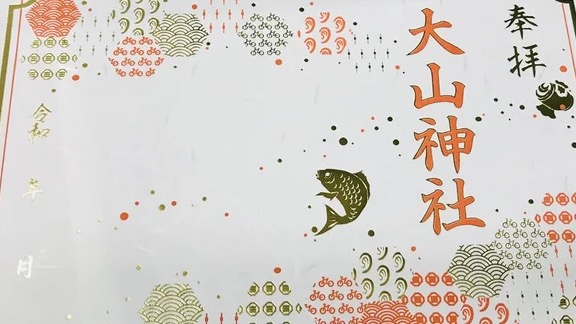 奉拝
大山神社
令和 年 月